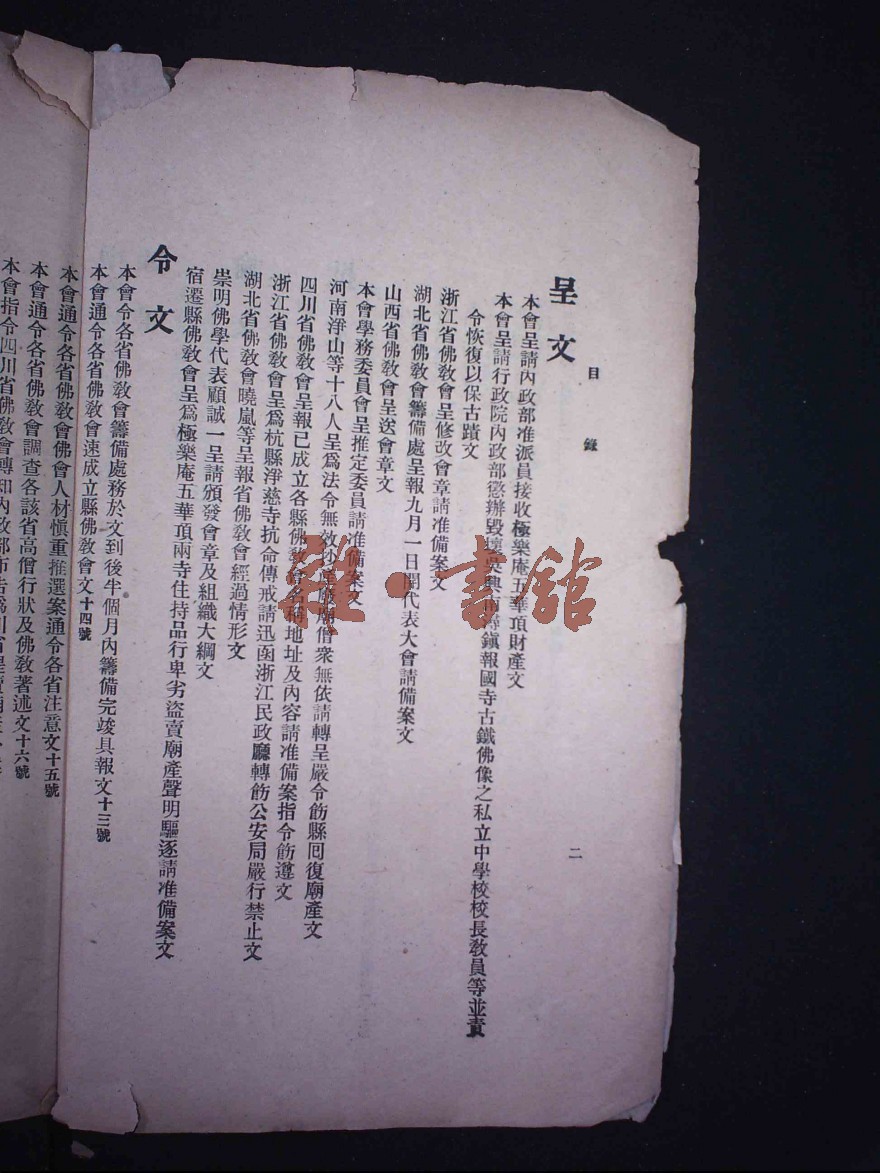 目錄
二
呈文
本會呈請內政部准派員接收極樂庵五華項財產文
本會呈請行政院內政部懲辦毀壞吳興南潯鎮報國寺古鐵佛像之私立中學校校長敎員等並責
令恢復以保古蹟文
浙江省佛敎會呈修改會章請准備案文
湖北省佛敎會籌備處呈報九月一日開代表大會請備案文
山西省佛敎會呈送會章文
本會學務委員會呈推定委員請准備案文
河南淨山等十八人呈爲法令無效抄產廢廟僧衆無依請轉呈嚴令飭縣囘復廟產文
四川省佛敎會呈報已成立各縣佛敎會名稱地址及內容請准備案指令飭遵文
浙江省佛敎會呈爲杭縣淨慈寺抗命傳戒請迅函浙江民政廳轉飭公安局嚴行禁止文
湖北省佛敎會曉嵐等呈報省佛敎會經過情形文
崇明佛學代表顧誠一呈請頒發會章及組織大綱文
宿遷縣佛敎會呈爲極樂庵五華頂兩寺住持品行卑劣盜賣廟產聲明驅逐請准備案文
令文
本會令各省佛敎會籌備處務於文到後半個月內籌備完竣具報文十三號
本會通令各省佛敎會速成立縣佛敎會文十四號
本會通令各省佛敎會佛會人材愼重推選案通令各省注意文十五號
本會通令各省佛敎會調查各該省高僧行狀及佛敎著述文十六號
本會指令四川省佛敎會轉知內政部布告爲川省
雅·書館